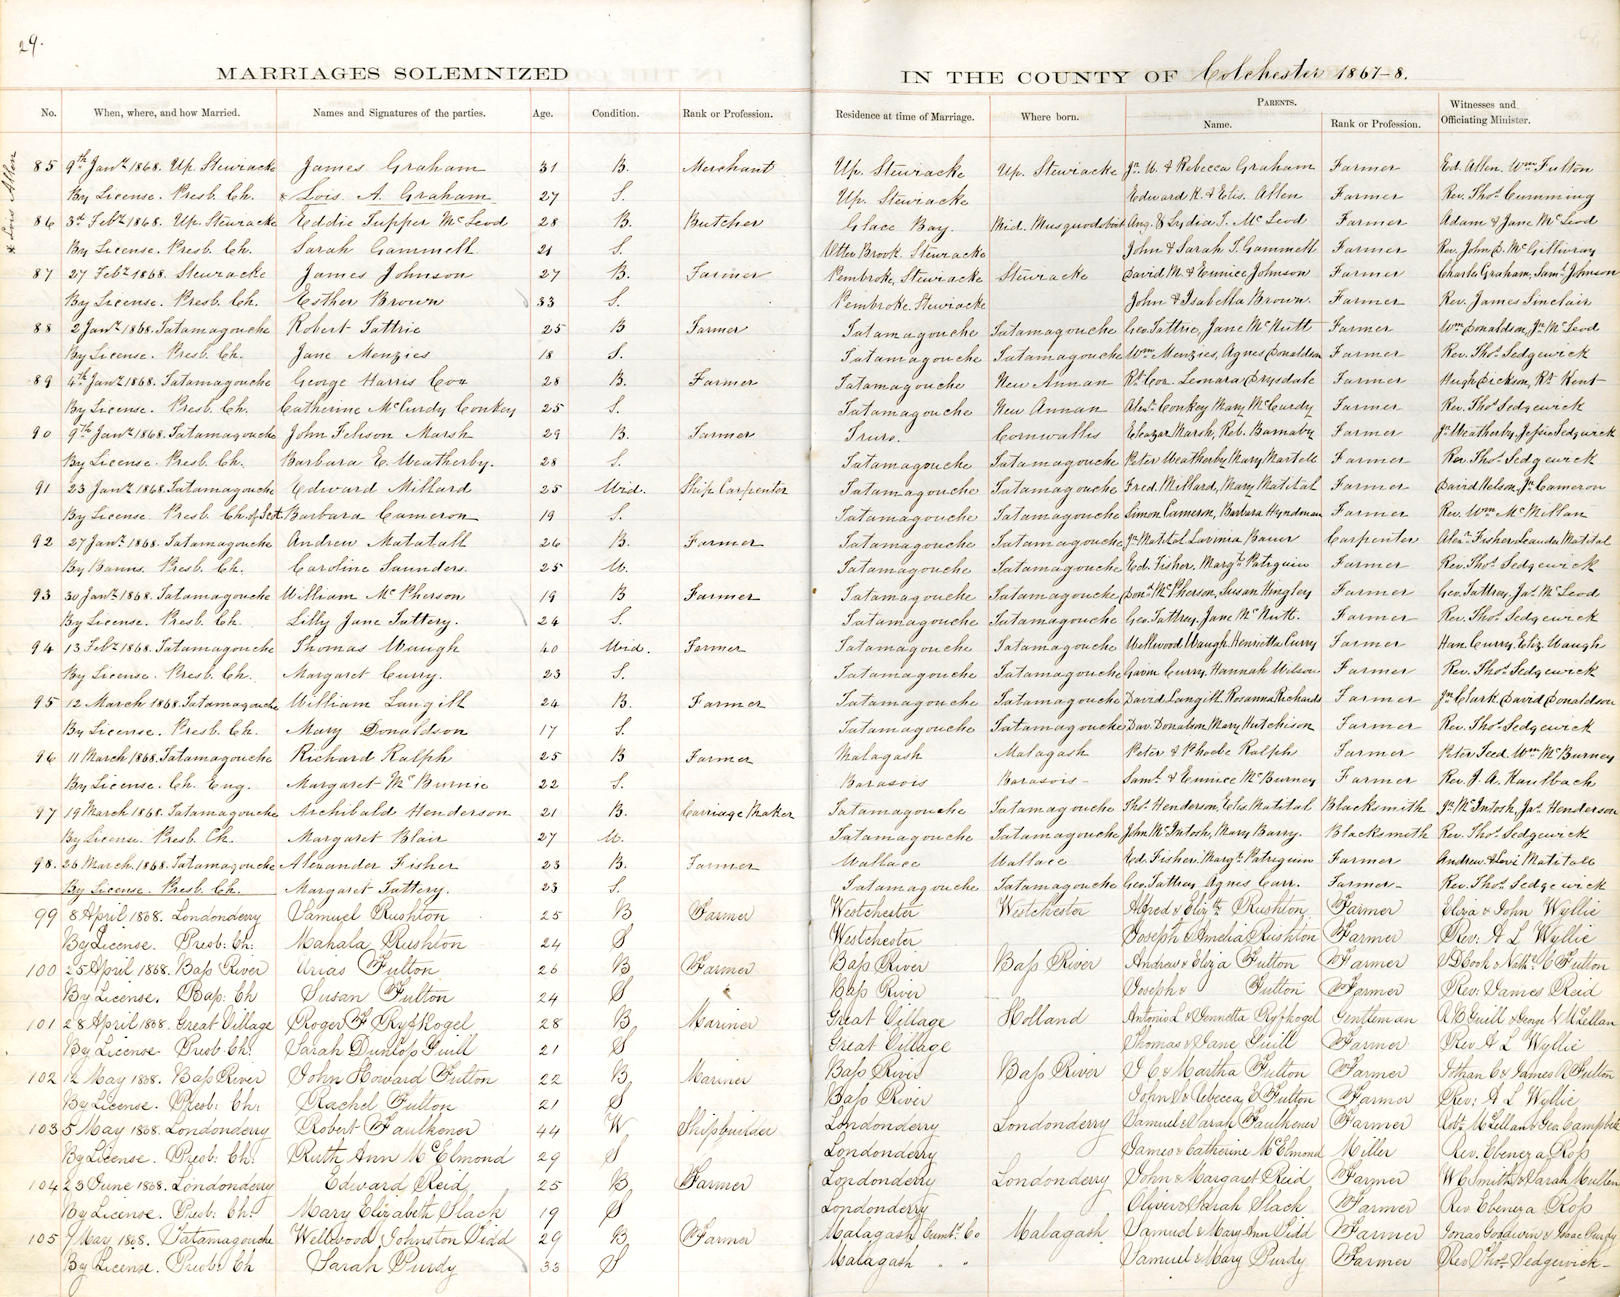 29.
MARRIAGES SOLEMNIZED IN THE COUNTY OF Colchester 1867-8.
No. When, where, and how Married. Names and Signatures of the parties. Age. Condition. Rank or Profession. Residence at time of Marriage. Where born. PARENTS. Name. Rank or Profession. Witnesses and Officiating Minister.
* Lois Allen
85 9th Jany 1868. Up. Stewiacke James Graham 31 B. Merchant Up. Stewiacke Up. Stewiacke Jn. W. & Rebecca Graham Farmer Ed. Allen. Wm Fulton
By License. Presb. Ch. * Lois A. Graham 27 S. Up. Stewiacke Edward K. & Elis. Allen Farmer Rev. Thos. Cumming
86 3d Feby 1868. Up. Stewiacke Eddie Tupper McLeod 28 B. Butcher Glace Bay. Mid. Musquodoboit Ang. & Lydia T. McLeod Farmer Adam & Jane McLeod
By License. Presb. Ch. Sarah Gammell 21 S. Otter Brook. Stewiacke John & Sarah T. Gammell Farmer Rev. John D. McGillivray
87 27 Feby 1868. Stewiacke James Johnson 27 B. Farmer Pembroke, Stewiacke Stewiacke David M. & Eunice Johnson Farmer Charles Graham, Saml Johnson
By License. Presb. Ch. Esther Brown 33 S. Pembroke. Stewiacke John & Isabella Brown. Farmer Rev. James Sinclair
88 2 Jany 1868. Tatamagouche Robert Tattrie 25 B Farmer Tatamagouche Tatamagouche Geo. Tattrie, Jane McNutt Farmer Wm Donaldson, Jn McLeod
By License. Presb. Ch. Jane Menzies 18 S. Tatamagouche Tatamagouche Wm Menzies, Agnes Donaldson Farmer Rev. Thos. Sedgewick
89 4th Jany 1868. Tatamagouche George Harris Cox 28 B. Farmer Tatamagouche New Annan Rt. Cox. Leonara Drysdale Farmer Hugh Dickson, Rt. Kent
By License. Presb. Ch. Catherine McCurdy Conkey 25 S. Tatamagouche New Annan Alexr Conkey Mary McCurdy Farmer Rev. Thos. Sedgewick
90 9th Jany 1868. Tatamagouche John Marsh 29 B. Farmer Truro. Cornwallis Eleazar Marsh, Reb. Barnaby Farmer Jn Weatherby, Jessie Sedgwick
By License. Presb. Ch. Barbara E. Weatherby. 28 S. Tatamagouche Tatamagouche Peter Weatherby Mary Martell Farmer Rev. Thos. Sedgewick
91 23 Jany 1868. Tatamagouche Edward Millard 25 Wid. Ship Carpenter Tatamagouche Tatamagouche Fred. Millard, Mary Matital Farmer David Nelson, Jn Cameron
By License. Presb. Ch. of Scot. Barbara Cameron 19 S. Tatamagouche Tatamagouche Simon Cameron, Barbara Hyndman Farmer Rev. Wm McMillan
92 27 Jany 1868. Tatamagouche Andrew Matatall 26 B. Farmer Tatamagouche Tatamagouche Jn Matital Lavinia Bauer Carpenter Alexr Fisher Leander Matital
By Banns. Presb. Ch. Caroline Saunders. 25 W. Tatamagouche Tatamagouche Ed. Fisher, Margt Patriquin Farmer Rev. Thos. Sedgewick
93 30 Jany 1868. Tatamagouche William McPherson 19 B Farmer Tatamagouche Tatamagouche Dond McPherson, Susan Hingley Farmer Geo. Tattrey, Jas. McLeod
By License. Presb. Ch. Lilly Jane Tattery. 24 S. Tatamagouche Tatamagouche Geo. Tattrey, Jane McNutt. Farmer Rev. Thos. Sedgewick
94 13 Feby 1868. Tatamagouche Thomas Waugh 40 Wid. Farmer Tatamagouche Tatamagouche Wellwood Waugh Henrietta Curry Farmer Han. Curry. Eliz. Waugh
By License. Presb. Ch. Margaret Curry. 23 S. Tatamagouche Tatamagouche Gavin Curry, Hannah Wilson Farmer Rev. Thos. Sedgewick
95 12 March 1868. Tatamagouche William Langill 24 B. Farmer Tatamagouche Tatamagouche David Langill Rosanna Richards Farmer Jn Clark. David Donaldson
By License. Presb. Ch. Mary Donaldson 17 S. Tatamagouche Tatamagouche Dav. Donalson, Mary Hutchison Farmer Rev. Thos. Sedgewick
96 11 March 1868. Tatamagouche Richard Ralph 25 B Farmer Malagash Malagash Peter & Phoebe Ralph Farmer Peter Teed. Wm McBurney
By License. Ch. Eng. Margaret McBurnie 22 S. Barasois Barasois Saml & Eunice McBurney Farmer Rev. J. A. Kaulbach
97 19 March 1868. Tatamagouche Archibald Henderson 21 B. Carriage Maker Tatamagouche Tatamagouche Thos. Henderson, Elis. Matital Blacksmith Jn McIntosh, Jas. Henderson
By License. Presb. Ch. Margaret Blair 27 W. Tatamagouche Tatamagouche John McIntosh, Mary Barry. Blacksmith Rev. Thos. Sedgewick
98. 26 March 1868. Tatamagouche Alexander Fisher 23 B. Farmer Wallace Wallace Ed. Fisher. Margt. Patriquin Farmer Andrew. & Levi Matitall
By License. Presb. Ch. Margaret Tattery. 23 S. Tatamagouche Tatamagouche Geo. Tattrey Agnes Carr. Farmer Rev. Thos. Sedgewick
99 8 April 1868. Londonderry Samuel Rushton 25 B Farmer Westchester Westchester Alfred & Elizth Rushton Farmer Eliza & John Wyllie
By License. Presb: Ch: Mahala Rushton 24 S Westchester Joseph & Amelia Rushton Farmer Rev: A L Wyllie
100 25 April 1868. Bass River Urias Fulton 26 B Farmer Bass River Bass River Andrew & Eliza Fulton Farmer Cook & Nathl C Fulton
By License. Bap: Ch Susan Fulton 24 S Bass River Joseph & Fulton Farmer Rev: James Reid
101 28 April 1868. Great Village Roger F Ryfkogel 28 B Mariner Great Village Holland Antonis L & Gennetta Ryfkogel Gentleman R B Guill & George McLellan
By License Presb Ch: Sarah Dunlop Guill 21 S Great Village Thomas & Jane Guill Farmer Rev A L Wyllie
102 12 May 1868. Bass River John Howard Fulton 22 B Mariner Bass River Bass River J C & Martha Fulton Farmer Ithan C & James R Fulton
By License. Presb: Ch: Rachel Fulton 21 S Bass River John S & Rebecca E Fulton Farmer Rev: A L Wyllie
103 5 May 1868. Londonderry Robert Faulkener 44 W Shipbuilder Londonderry Londonderry Samuel & Sarah Faulkener Farmer Robt. McLellan & Geo. Campbell
By License. Presb: Ch: Ruth Ann McElmond 29 S Londonderry James & Catherine McElmond Miller Rev. Ebeneza Ross
104 23 June 1868. Londonderry Edward Reid 25 B Farmer Londonderry Londonderry John & Margaret Reid Farmer W C Smith & Sarah Mullen
By License. Presb: Ch: Mary Elizabeth Slack 19 S Londonderry Oliver & Sarah Slack Farmer Rev Ebeneza Ross
105 7 May 1868. Tatamagouche Wellwood Johnston Tidd 29 B Farmer Malagash Cumbd. Co Malagash Samuel & Mary Ann Tidd Farmer Jonas Goodwin & Isaac Purdy
By License. Presb: Ch Sarah Purdy 33 S Malagash " " Samuel & Mary Purdy Farmer Rev Thos. Sedgewick